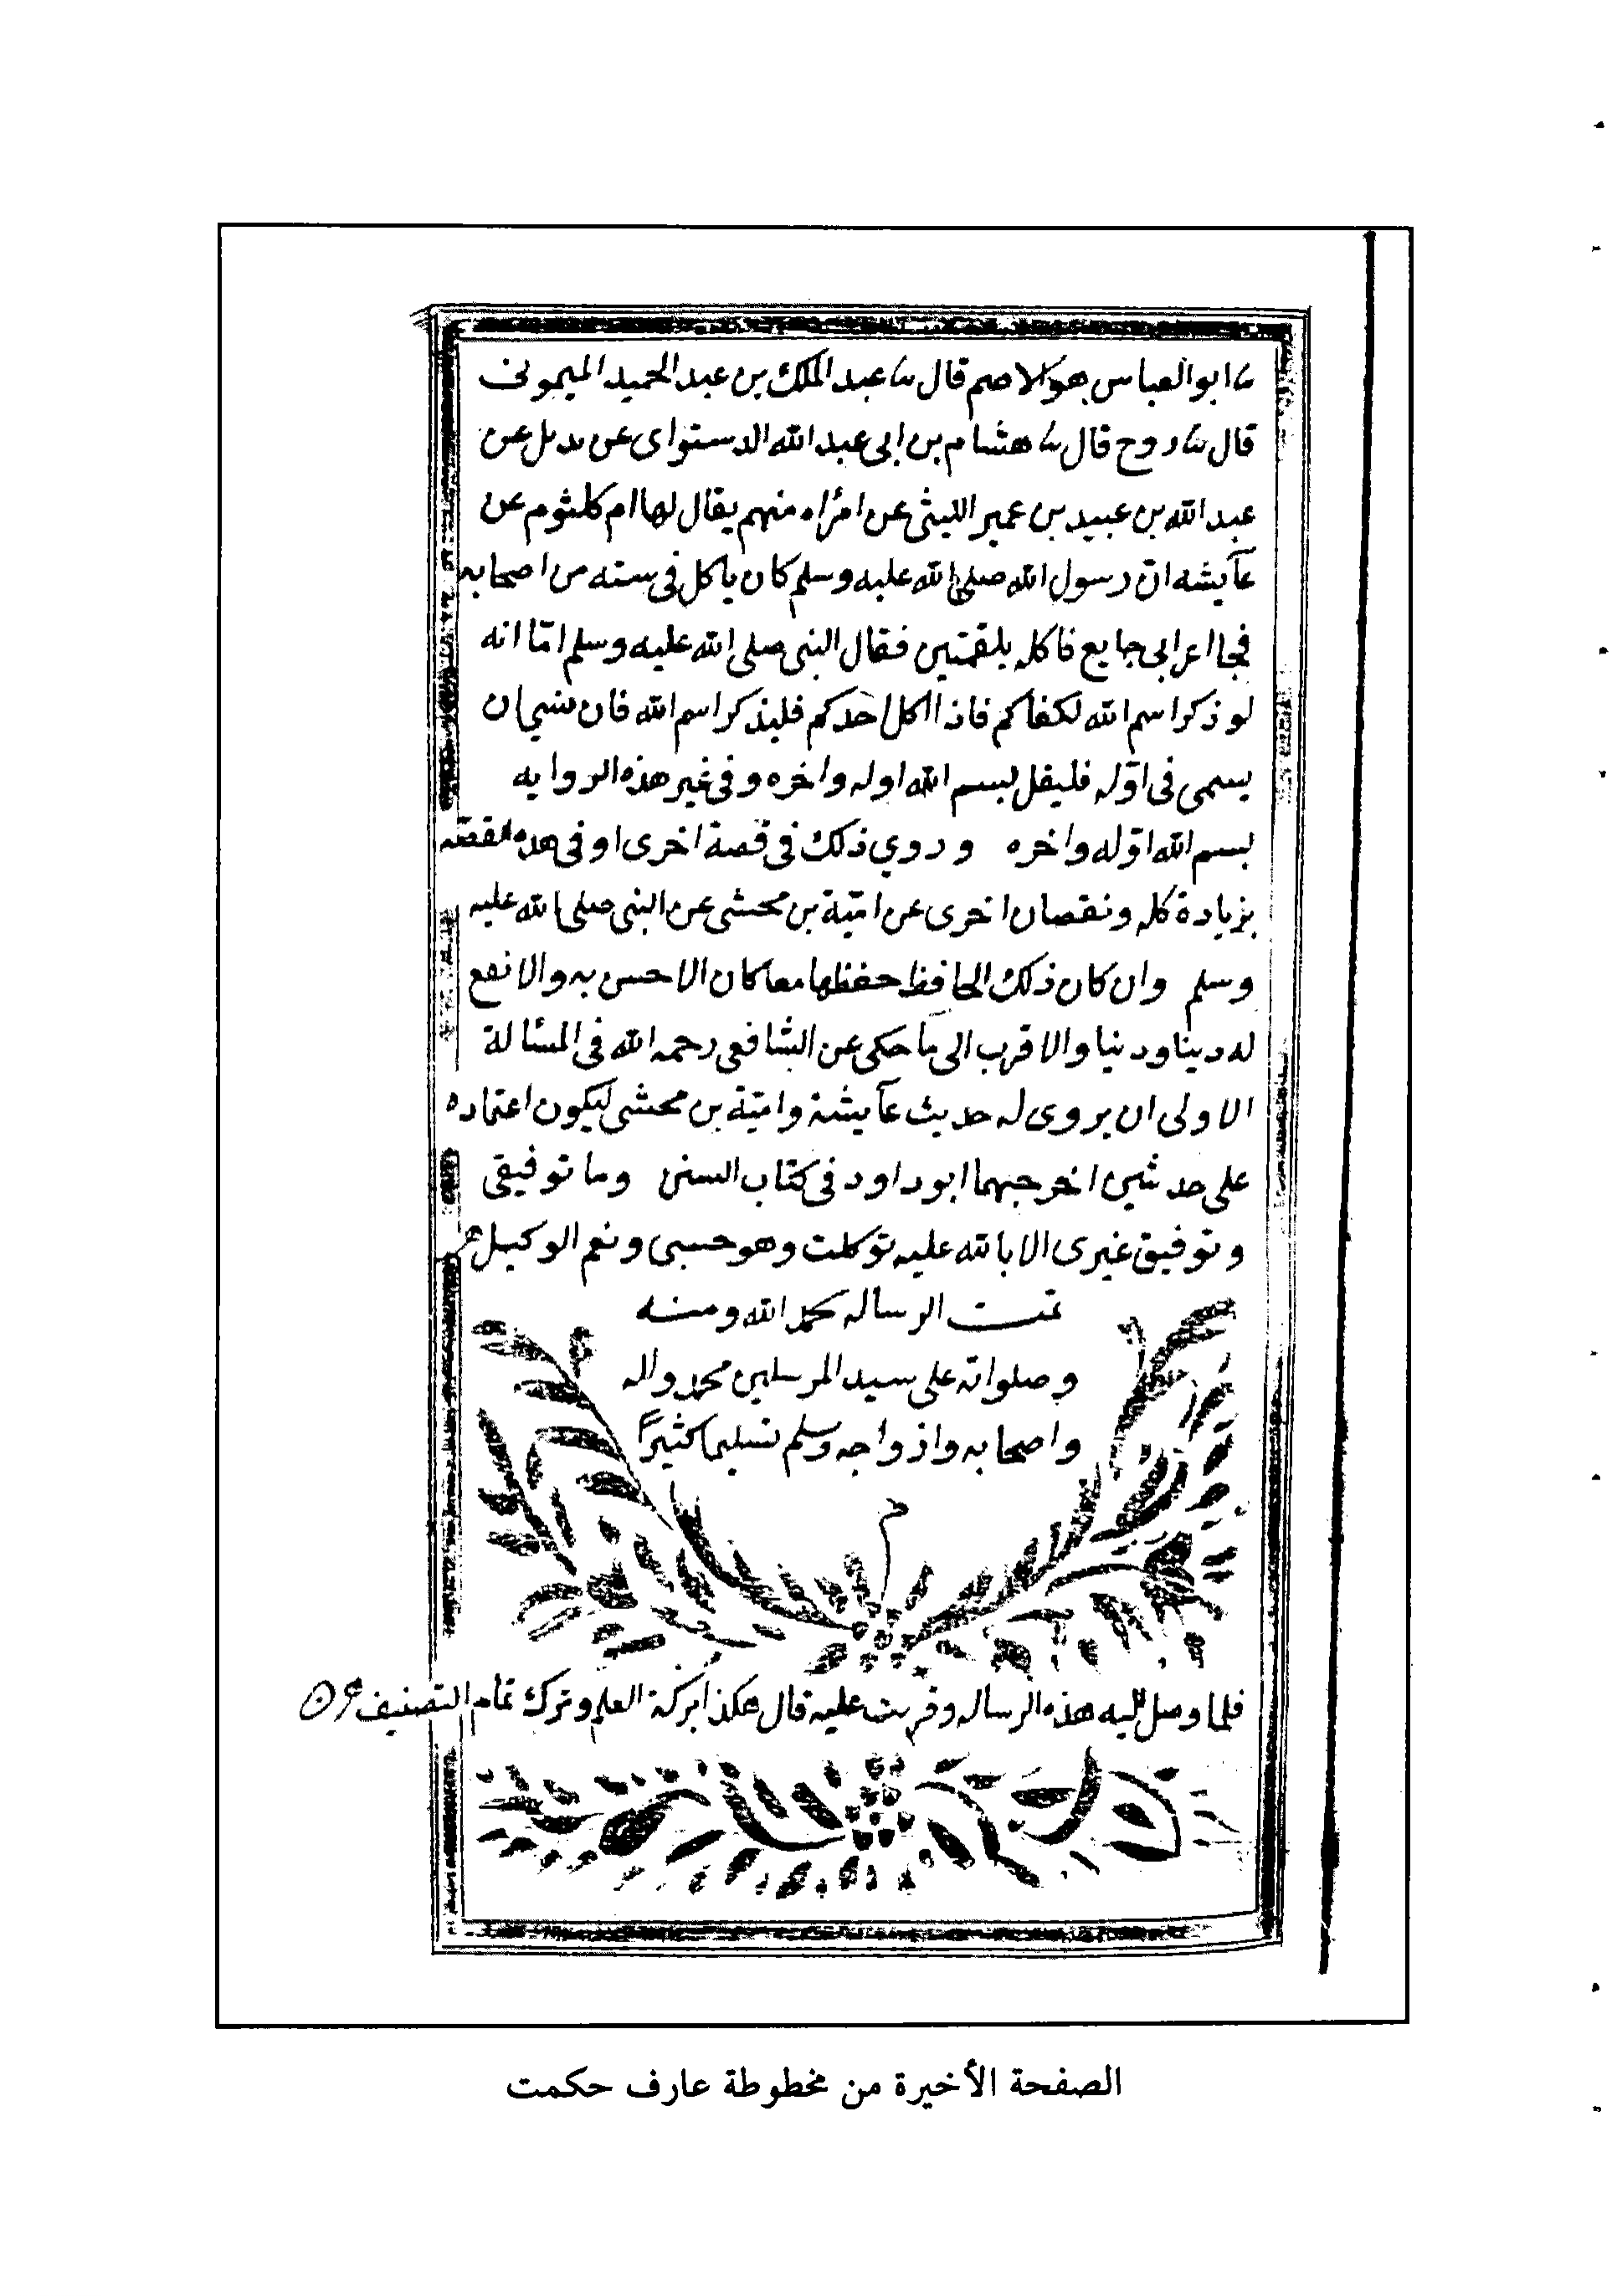 ثنا ابو العباس هو الاصم قال ثنا عبد الملك بن عبد الحميد الميمونى
قال ثنا روح قال ثنا هشام بن ابى عبد الله الدستواى عن بديل عن
عبد الله بن عبيد بن عمير الليثى عن امرأه منهم يقال لها ام كلثوم عن
عآيشه ان رسول الله صلى الله عليه وسلم كان ياكل فى سته من اصحابه
فجا اعرابى جايع فاكله بلقمتين فقال النبى صلى الله عليه وسلم امّا انه
لو ذكر اسم الله لكفاكم فاذا اكل احدكم فليذكر اسم الله فان نسي ان
يسمى فى اوّله فليقل بسم الله اوله واخره وفى غير هذه الروايه
بسم الله اوّله واخره و روي ذلك فى قصة اخرى او فى هذه القصّه
بزيادة كله ونقصان اخرى عن اميّة بن مخشى عن النبى صلى الله عليه
وسلم وان كان ذلك الحافظ حفظها معا كان الاحسن به والانفع
له دينا ودنيا والاقرب الى ما حكى عن الشافعى رحمه الله فى المسألة
الاولى ان يروى له حديث عآيشة واميّة بن مخشى ليكون اعتماده
على حديثين اخرجهما ابو داود فى كتاب السنن وما توفيقى
و توفيق غيرى الا بالله عليه توكلت وهو حسبى ونعم الوكيل
تمت الرساله بحمد الله ومنه
وصلواته على سيد المرسلين محمد واله
واصحابه وازواجه وسلم تسليما كثيرًا
م
فلما وصل اليه هذه الرساله وقريت عليه قال هكذا بركة العلم وترك تمام التصنيف
الصفحة الأخيرة من مخطوطة عارف حكمت